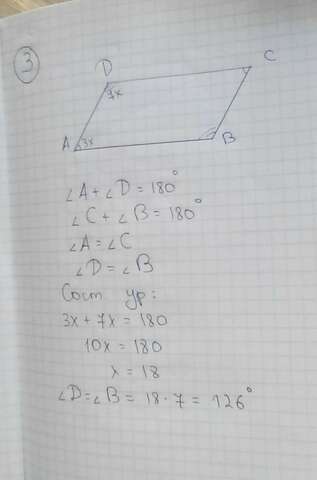 3
D
C
7x
A 3x
B
∠A + ∠D = 180°
∠C + ∠B = 180°
∠A = ∠C
∠D = ∠B
Сост ур:
3x + 7x = 180
10x = 180
x = 18
∠D = ∠B = 18 · 7 = 126°